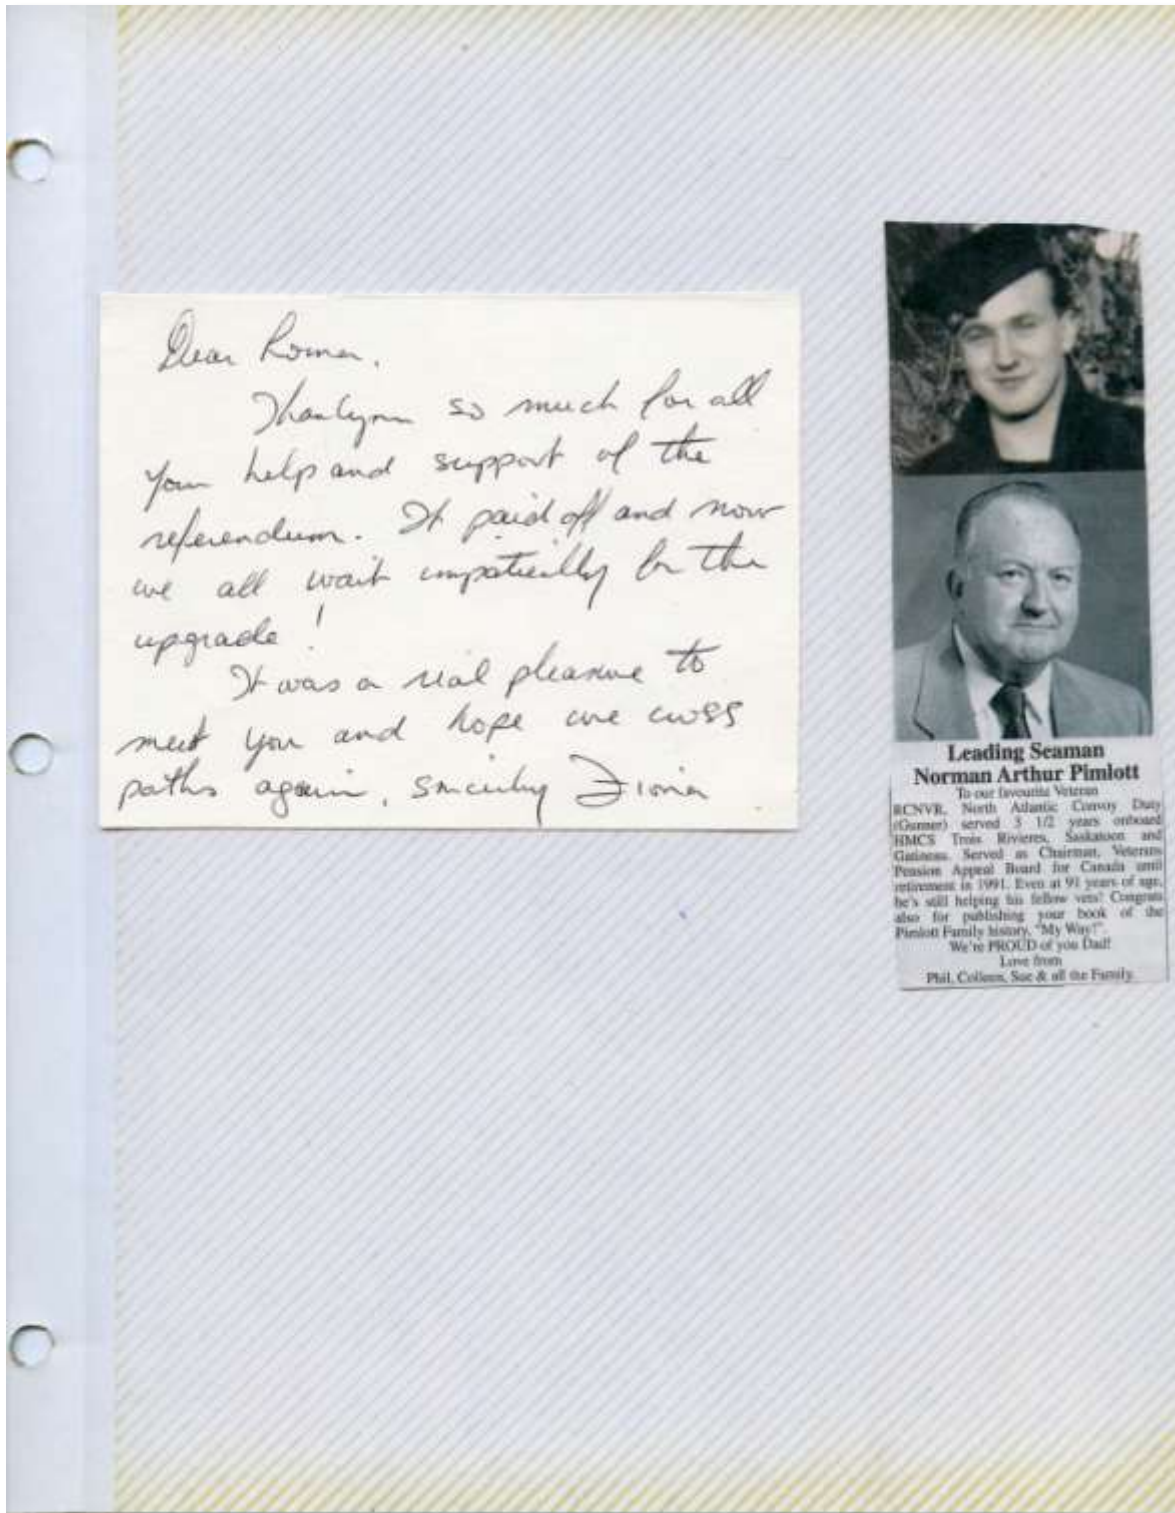 Dear Roma,
Thankyou so much for all
your help and support of the
referendum. It paid off and now
we all wait impatiently for the
upgrade!
It was a real pleasure to
meet you and hope we cross
paths again, sincerely Fiona
Leading Seaman
Norman Arthur Pimlott
To our favourite Veteran
RCNVR, North Atlantic Convoy Duty
(Gunner) served 3 1/2 years onboard
HMCS Trois Rivieres, Saskatoon and
Gatineau. Served as Chairman, Veterans
Pension Appeal Board for Canada until
retirement in 1991. Even at 91 years of age,
he's still helping his fellow vets! Congrats
also for publishing your book of the
Pimlott Family history, "My Way!".
We're PROUD of you Dad!
Love from
Phil, Colleen, Sue & all the Family.